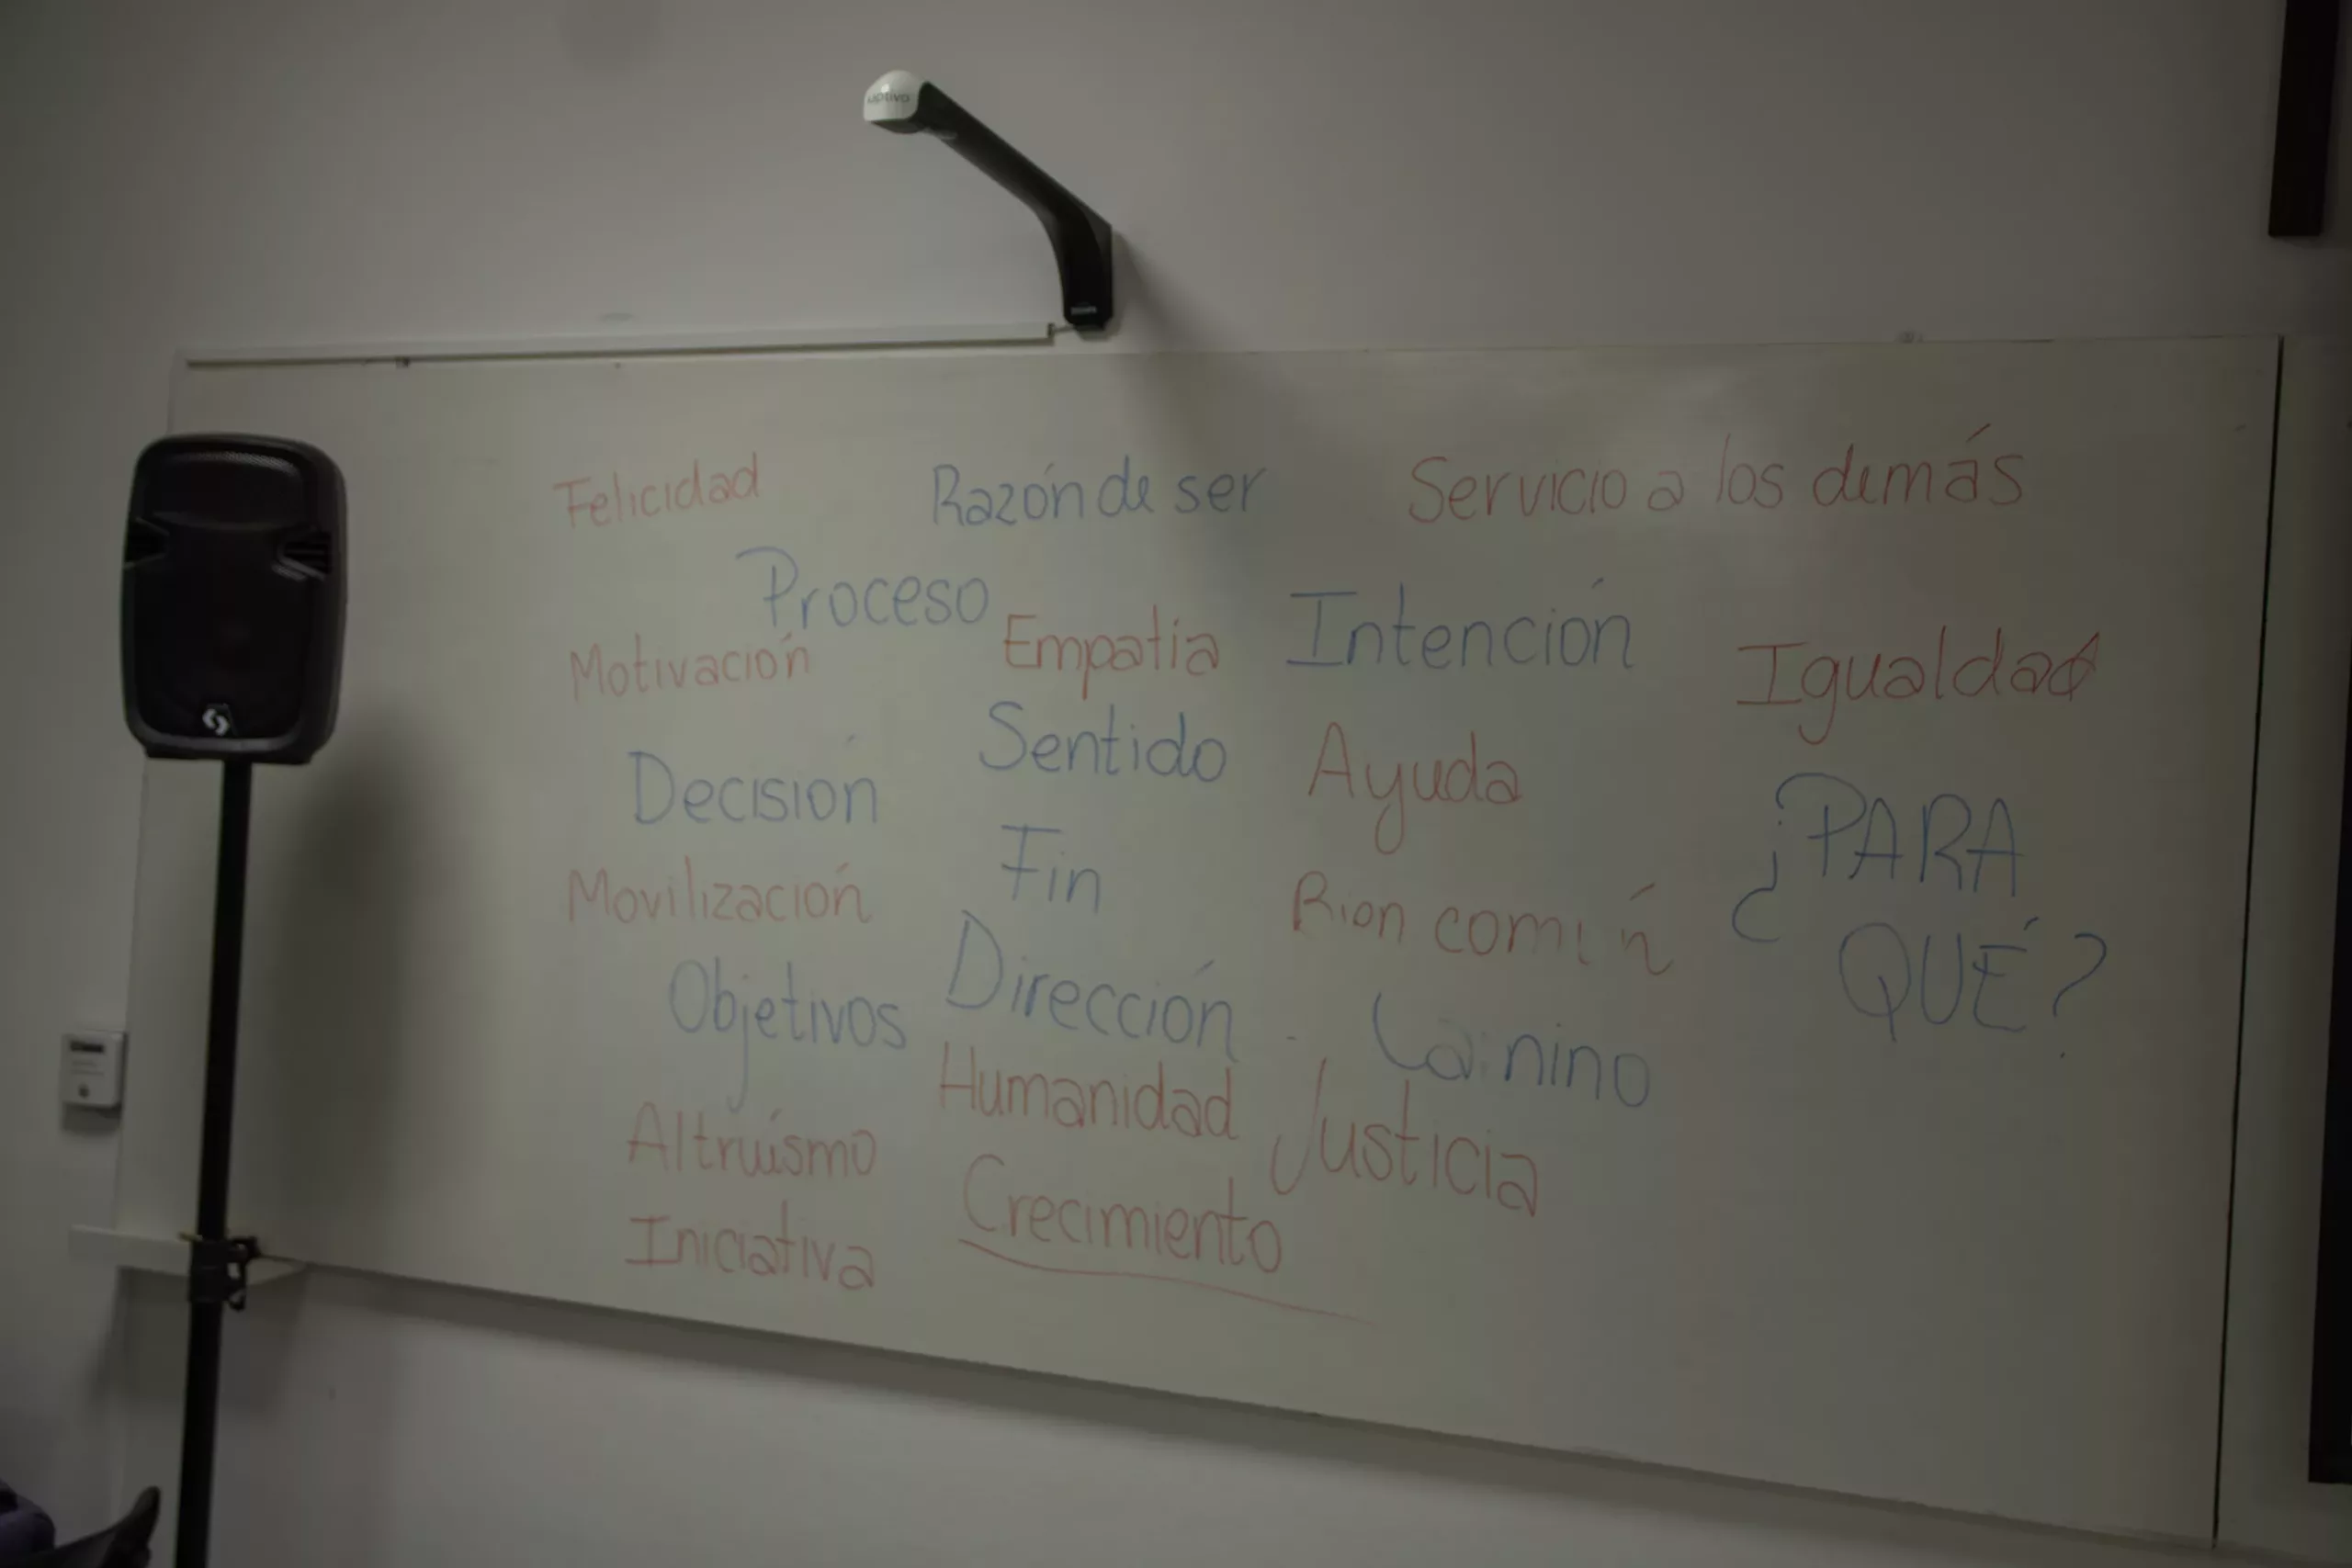 Felicidad
Razón de ser
Servicio a los demás
Proceso
Motivación
Empatia
Intención
Igualdad
Decisión
Sentido
Ayuda
¿PARA
QUÉ?
Movilización
Fin
común
Objetivos
Dirección
Altruismo
Humanidad
Justicia
Iniciativa
Crecimiento